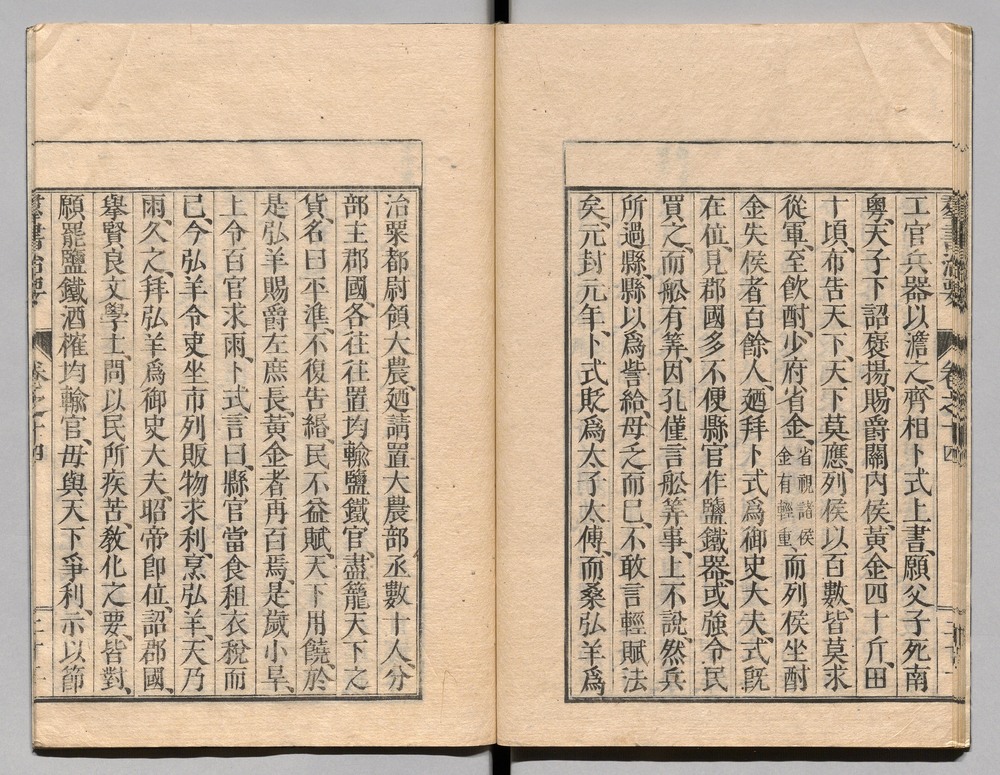 羣書治要 卷之十四
工官兵器以澹之、齊相卜式上書、願父子死南
粵、天子下詔褒揚、賜爵關內侯、黃金四十斤、田
十頃、布告天下、天下莫應、列侯以百數、皆莫求
從軍、至飮酎、少府省金、省視諸侯金有輕重、而列侯坐酎
金失侯者百餘人、廼拜卜式爲御史大夫、式旣
在位、見郡國多不便縣官作鹽鐵器、或強令民
買之、而舩有筭、因孔僅言舩筭事、上不說、然兵
所過縣、縣以爲訾給、毋乏而已、不敢言輕賦法
矣、元封元年、卜式貶爲太子太傅、而桑弘羊爲
治粟都尉領大農、廼請置大農部丞數十人、分
部主郡國、各往往置均輸鹽鐵官、盡籠天下之
貨、名曰平準、不復告緡、民不益賦、天下用饒、於
是弘羊賜爵左庶長、黃金者再百焉、是歲小旱、
上令百官求雨、卜式言曰、縣官當食租衣稅而
已、今弘羊令吏坐市列販物求利、烹弘羊、天乃
雨、久之、拜弘羊爲御史大夫、昭帝卽位、詔郡國、
擧賢良文學士、問以民所疾苦、敎化之要、皆對、
願罷鹽鐵酒榷均輸官、毋與天下爭利、示以節
羣書治要 卷之十四